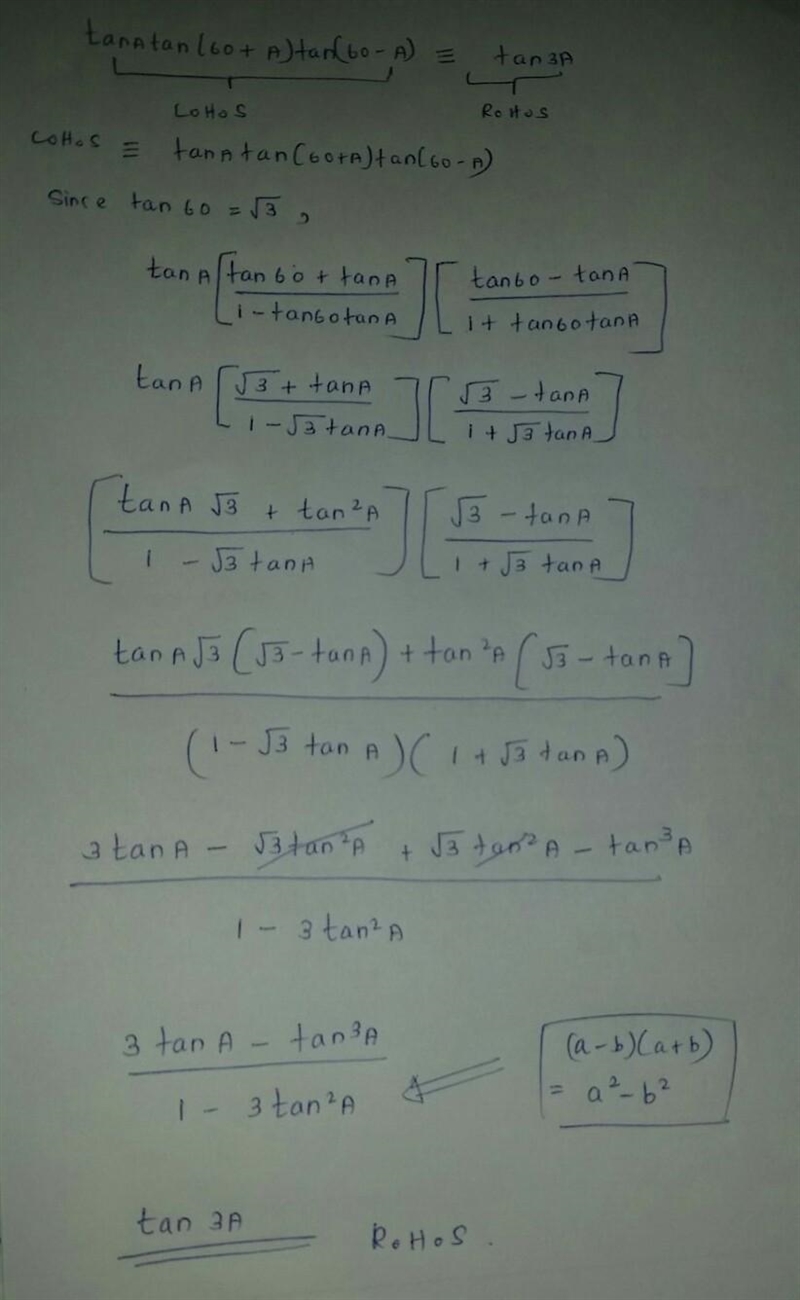 tanA tan(60+A)tan(60-A) ≡ tan3A
LoHoS RoHoS
LoHoS ≡ tanA tan(60+A)tan(60-A)
Since tan 60 = √3 ,
tanA [(tan 60 + tanA)/(1 - tan60tanA)] [(tan60 - tanA)/(1 + tan60tanA)]
tanA [(√3 + tanA)/(1 - √3 tanA)] [(√3 - tanA)/(1 + √3 tanA)]
[(tanA √3 + tan²A)/(1 - √3 tanA)] [(√3 - tanA)/(1 + √3 tanA)]
tanA√3(√3 - tanA) + tan²A[√3 - tanA]
(1 - √3 tan A)(1 + √3 tanA)
3 tanA - √3tan²A + √3 tan²A - tan³A
1 - 3 tan²A
3 tanA - tan³A
1 - 3 tan²A
(a-b)(a+b)
= a²-b²
tan 3A RoHoS .